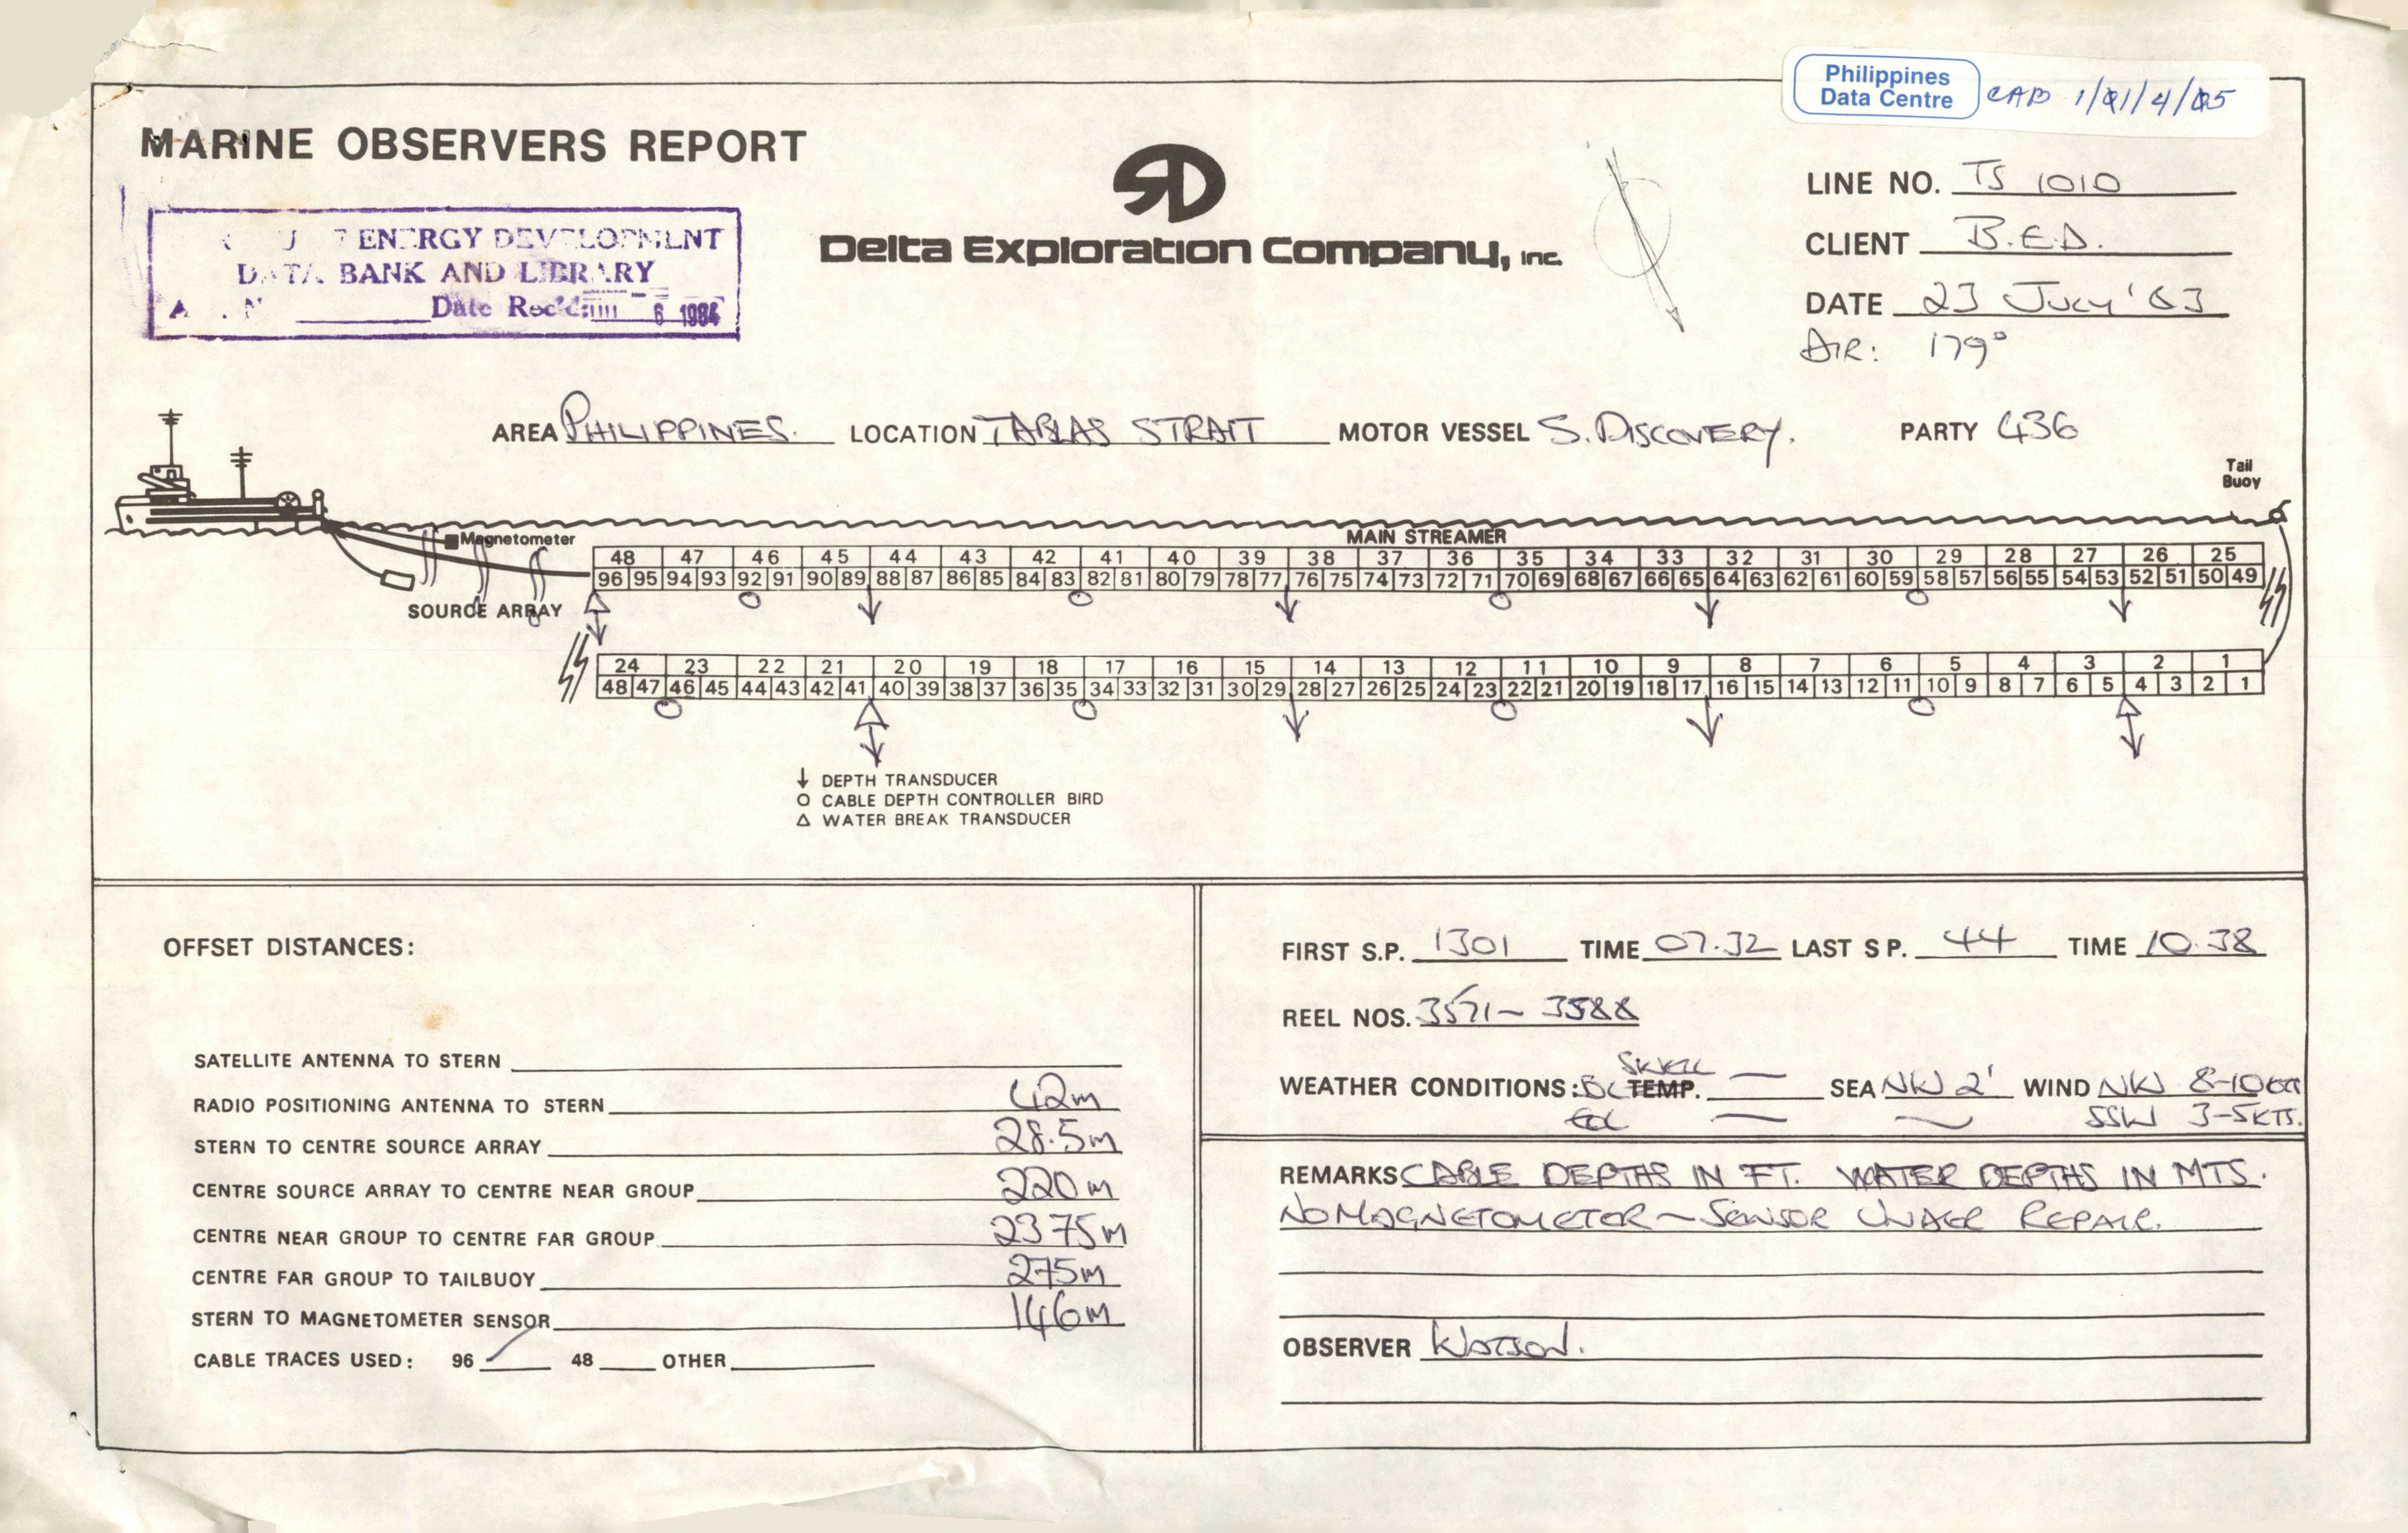 Philippines
Data Centre CAB 1/01/4/05
MARINE OBSERVERS REPORT
ENERGY DEVELOPMENT
DATA BANK AND LIBRARY
Date Rec'd: 6 1984
Delta Exploration Company, Inc.
LINE NO. TS 1010
CLIENT B.E.D.
DATE 23 JULY '83
DIR: 179°
AREA PHILIPPINES. LOCATION TABLAS STRAIT MOTOR VESSEL S. DISCOVERY. PARTY 436
Tail
Buoy
MAIN STREAMER
Magnetometer
48 47 46 45 44 43 42 41 40 39 38 37 36 35 34 33 32 31 30 29 28 27 26 25
96 95 94 93 92 91 90 89 88 87 86 85 84 83 82 81 80 79 78 77 76 75 74 73 72 71 70 69 68 67 66 65 64 63 62 61 60 59 58 57 56 55 54 53 52 51 50 49
SOURCE ARRAY
24 23 22 21 20 19 18 17 16 15 14 13 12 11 10 9 8 7 6 5 4 3 2 1
48 47 46 45 44 43 42 41 40 39 38 37 36 35 34 33 32 31 30 29 28 27 26 25 24 23 22 21 20 19 18 17 16 15 14 13 12 11 10 9 8 7 6 5 4 3 2 1
↓ DEPTH TRANSDUCER
O CABLE DEPTH CONTROLLER BIRD
△ WATER BREAK TRANSDUCER
OFFSET DISTANCES:
SATELLITE ANTENNA TO STERN
RADIO POSITIONING ANTENNA TO STERN 42m
STERN TO CENTRE SOURCE ARRAY 28.5m
CENTRE SOURCE ARRAY TO CENTRE NEAR GROUP 220m
CENTRE NEAR GROUP TO CENTRE FAR GROUP 2375m
CENTRE FAR GROUP TO TAILBUOY 275m
STERN TO MAGNETOMETER SENSOR 146m
CABLE TRACES USED: 96 ✓ 48 OTHER
FIRST S.P. 1301 TIME 07.32 LAST S P. 44 TIME 10.38
REEL NOS. 3571 - 3588
SWELL
WEATHER CONDITIONS: BOL TEMP. — SEA NW 2' WIND NW 8-10 KTS
EOL — — SSW 3-5 KTS.
REMARKS CABLE DEPTHS IN FT. WATER DEPTHS IN MTS.
NO MAGNETOMETER - SENSOR UNDER REPAIR.
OBSERVER WATSON.